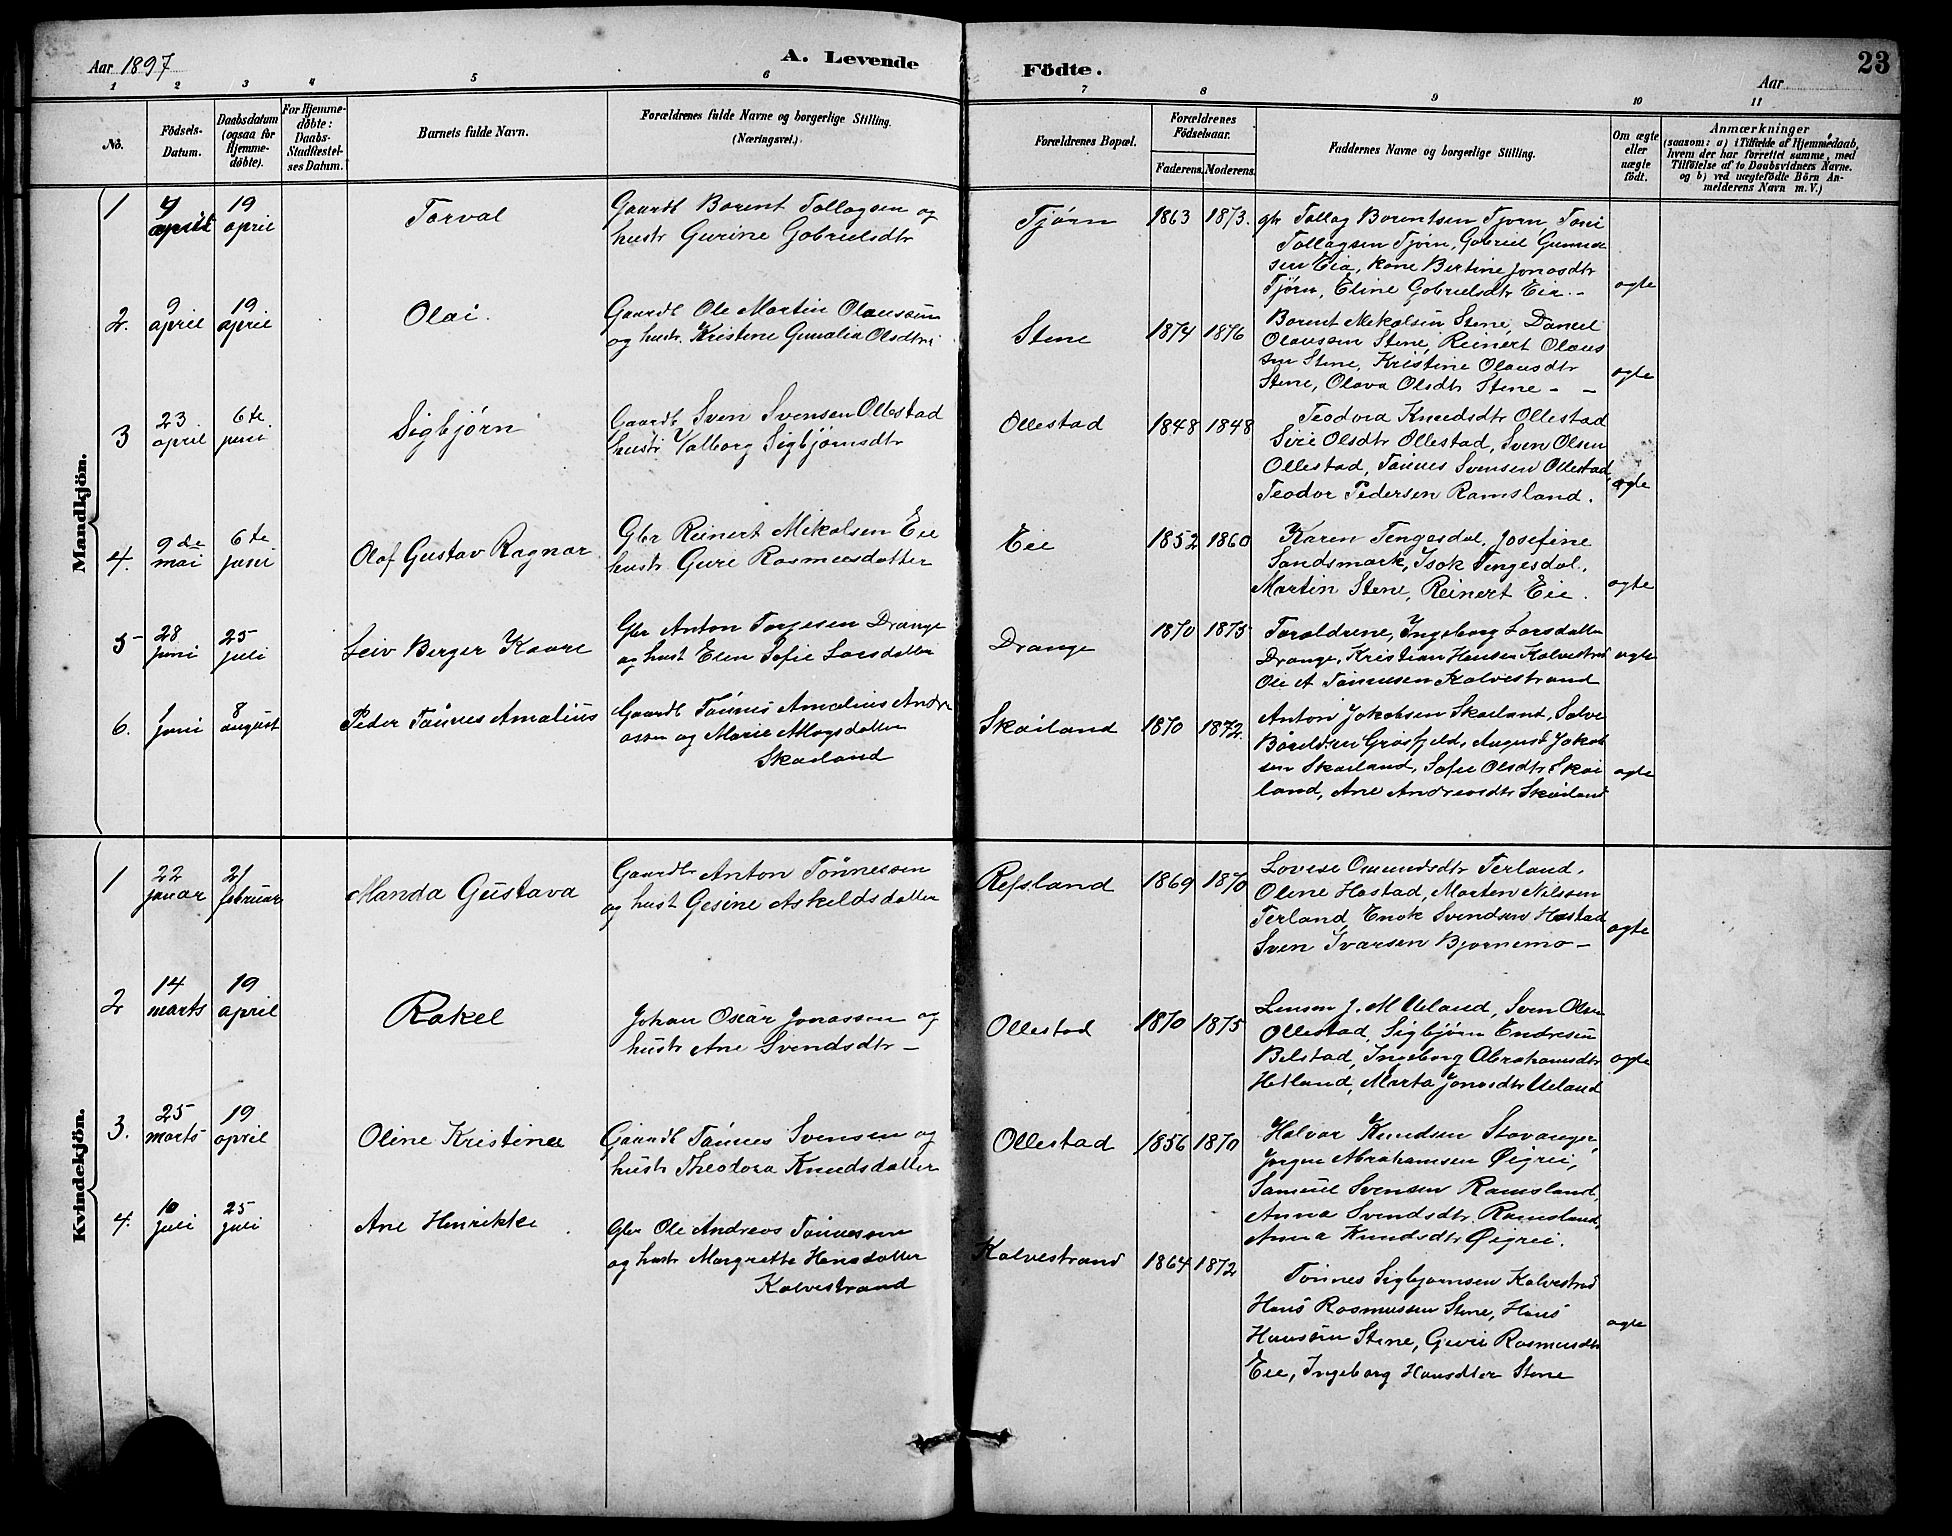 Aar 1897
A. Levende
Födte.
Aar
23
1 2 3 4 5 6 7 8 9 10 11
No.
Födsels-
Datum.
Daabsdatum
(ogsaa for
Hjemme-
döbte).
For Hjemme-
döbte:
Daabs-
Stadfæstel-
ses Datum.
Barnets fulde Navn.
Forældrenes fulde Navne og borgerlige Stilling.
(Næringsvei.)
Forældrenes Bopæl.
Forældrenes
Födselsaar.
Faderens. Moderens.
Faddernes Navne og borgerlige Stilling.
Om ægte
eller
uægte
födt.
Anmærkninger
(saasom: a) i Tilfælde af Hjemmedaab,
hvem der har forrettet samme, med
Tilföielse af to Daabsvidners Navne.
og b) ved uægtefödte Börn An-
melderens Navn m. V.)
Mandkjön.
1
april
19
april
Torval
Gaardb Borent Tollagsen og
hustr Gurine Gabrielsdtr
Tjørn
1863 1873.
gbr Tollag Borentsen Tjørn, Toni
Tollagsen Tjørn, Gabriel Gunna
sen Eia, kone Bertine Jonasdtr
Tjørn, Eline Gabrielsdtr Eie. -
ægte
2.
9
april
19
april
Olai.
Gaardb Ole Martin Olaussen
og hustr. Kristine Gunalia Olsdtr
Stene
1874 1876
Borent Mekalsen Stene, Daniel
Olaussen Stene, Reinert Olaus
sen Stene, Kristine Olausdtr
Stene, Olava Olsdtr Stene - -
ægte
3
23
april
6te
juni
Sigbjørn
Gaardb Sven Svensen Ollestad
hustr Valborg Sigbjørnsdtr
Ollestad
1848 1848
Teodora Knudsdtr Ollestad
Siri Olsdtr Ollestad, Sven Olsen
Ollestad, Tønnes Svensen Ollestad,
Teodor Pedersen Ramsland.
ægte
4.
9de
mai
6te
juni
Olaf Gustav Ragnar
Gbr Reinert Mikalsen Eie
hustr Guri Rasmusdatter
Eie
1852 1860
Karen Tengesdal, Josefine
Sandsmark, Isak Tengesdal,
Martin Stene, Reinert Eie.
ægte
5
28
juni
25
juli
Leiv Berger Kaare
Gbr Anton Torjesen Drange
og hust Elen Sofie Larsdatter
Drange
1870 1875
Foraldrene, Ingeborg Larsdatter
Drange, Kristian Hansen Kalvestrad
Ole A Tønnesen Kalvestrand
ægte
6.
1
juni
8
august
Peder Tønnes Amalius
Gaardb Tønnes Amalius Andre
assen og Marie Magsdatter
Skailand
Skailand
1870 1872.
Anton Jakobsen Skailand, Salve
Bårdsen Grøsfjeld, August Jakob
sen Skailand, Sofie Olsdtr Skai
land, Ane Andreasdtr Skailand
ægte
Kvindekjön.
1
22
januar
21
februar
Manda Gustava
Gaardbr Anton Tønnessen
og hust Gesine Askeldsdatter
Refsland
1869 1870
Lovise Omundsdtr Terland,
Oline Hastad, Morten Nilssen
Terland, Enok Svendsen Hastad
Sven Ivarsen Bjørnemo -
ægte
2
14
marts
19
april
Rakel
Johan Oscar Jonassen og
hustr Ane Svendsdtr -
Ollestad
1870 1875
Lensm J. M Ueland, Sven Olsen
Ollestad, Sigbjørn Endresen
Bilstad, Ingeborg Abrahamsdtr
Hetland, Marta Jonasdtr Ueland
ægte
3.
25
marts
19
april
Oline Kristine
Gaardb Tønnes Svensen og
hustr Theodora Knudsdatter
Ollestad
1856 1870
Halvor Knudsen Stavanger,
Jørgen Abrahamsen Øigrei,
Samuel Svensen Ramsland,
Anna Svendsdtr Ramsland,
Anna Knudsdtr Øigrei.
4.
10
juli
25
juli
Ane Henrikke
Gbr Ole Andreas Tønnessen
og hustr Margrethe Hansdatter
Kalvestrand
Kalvestrand
1864 1872
Tønnes Sigbjørnsen Kalvestrad
Hans Rasmussen Stene, Hans
Hansen Stene, Guri Rasmusdtr
Eie, Ingeborg Hansdter Stene
ægte